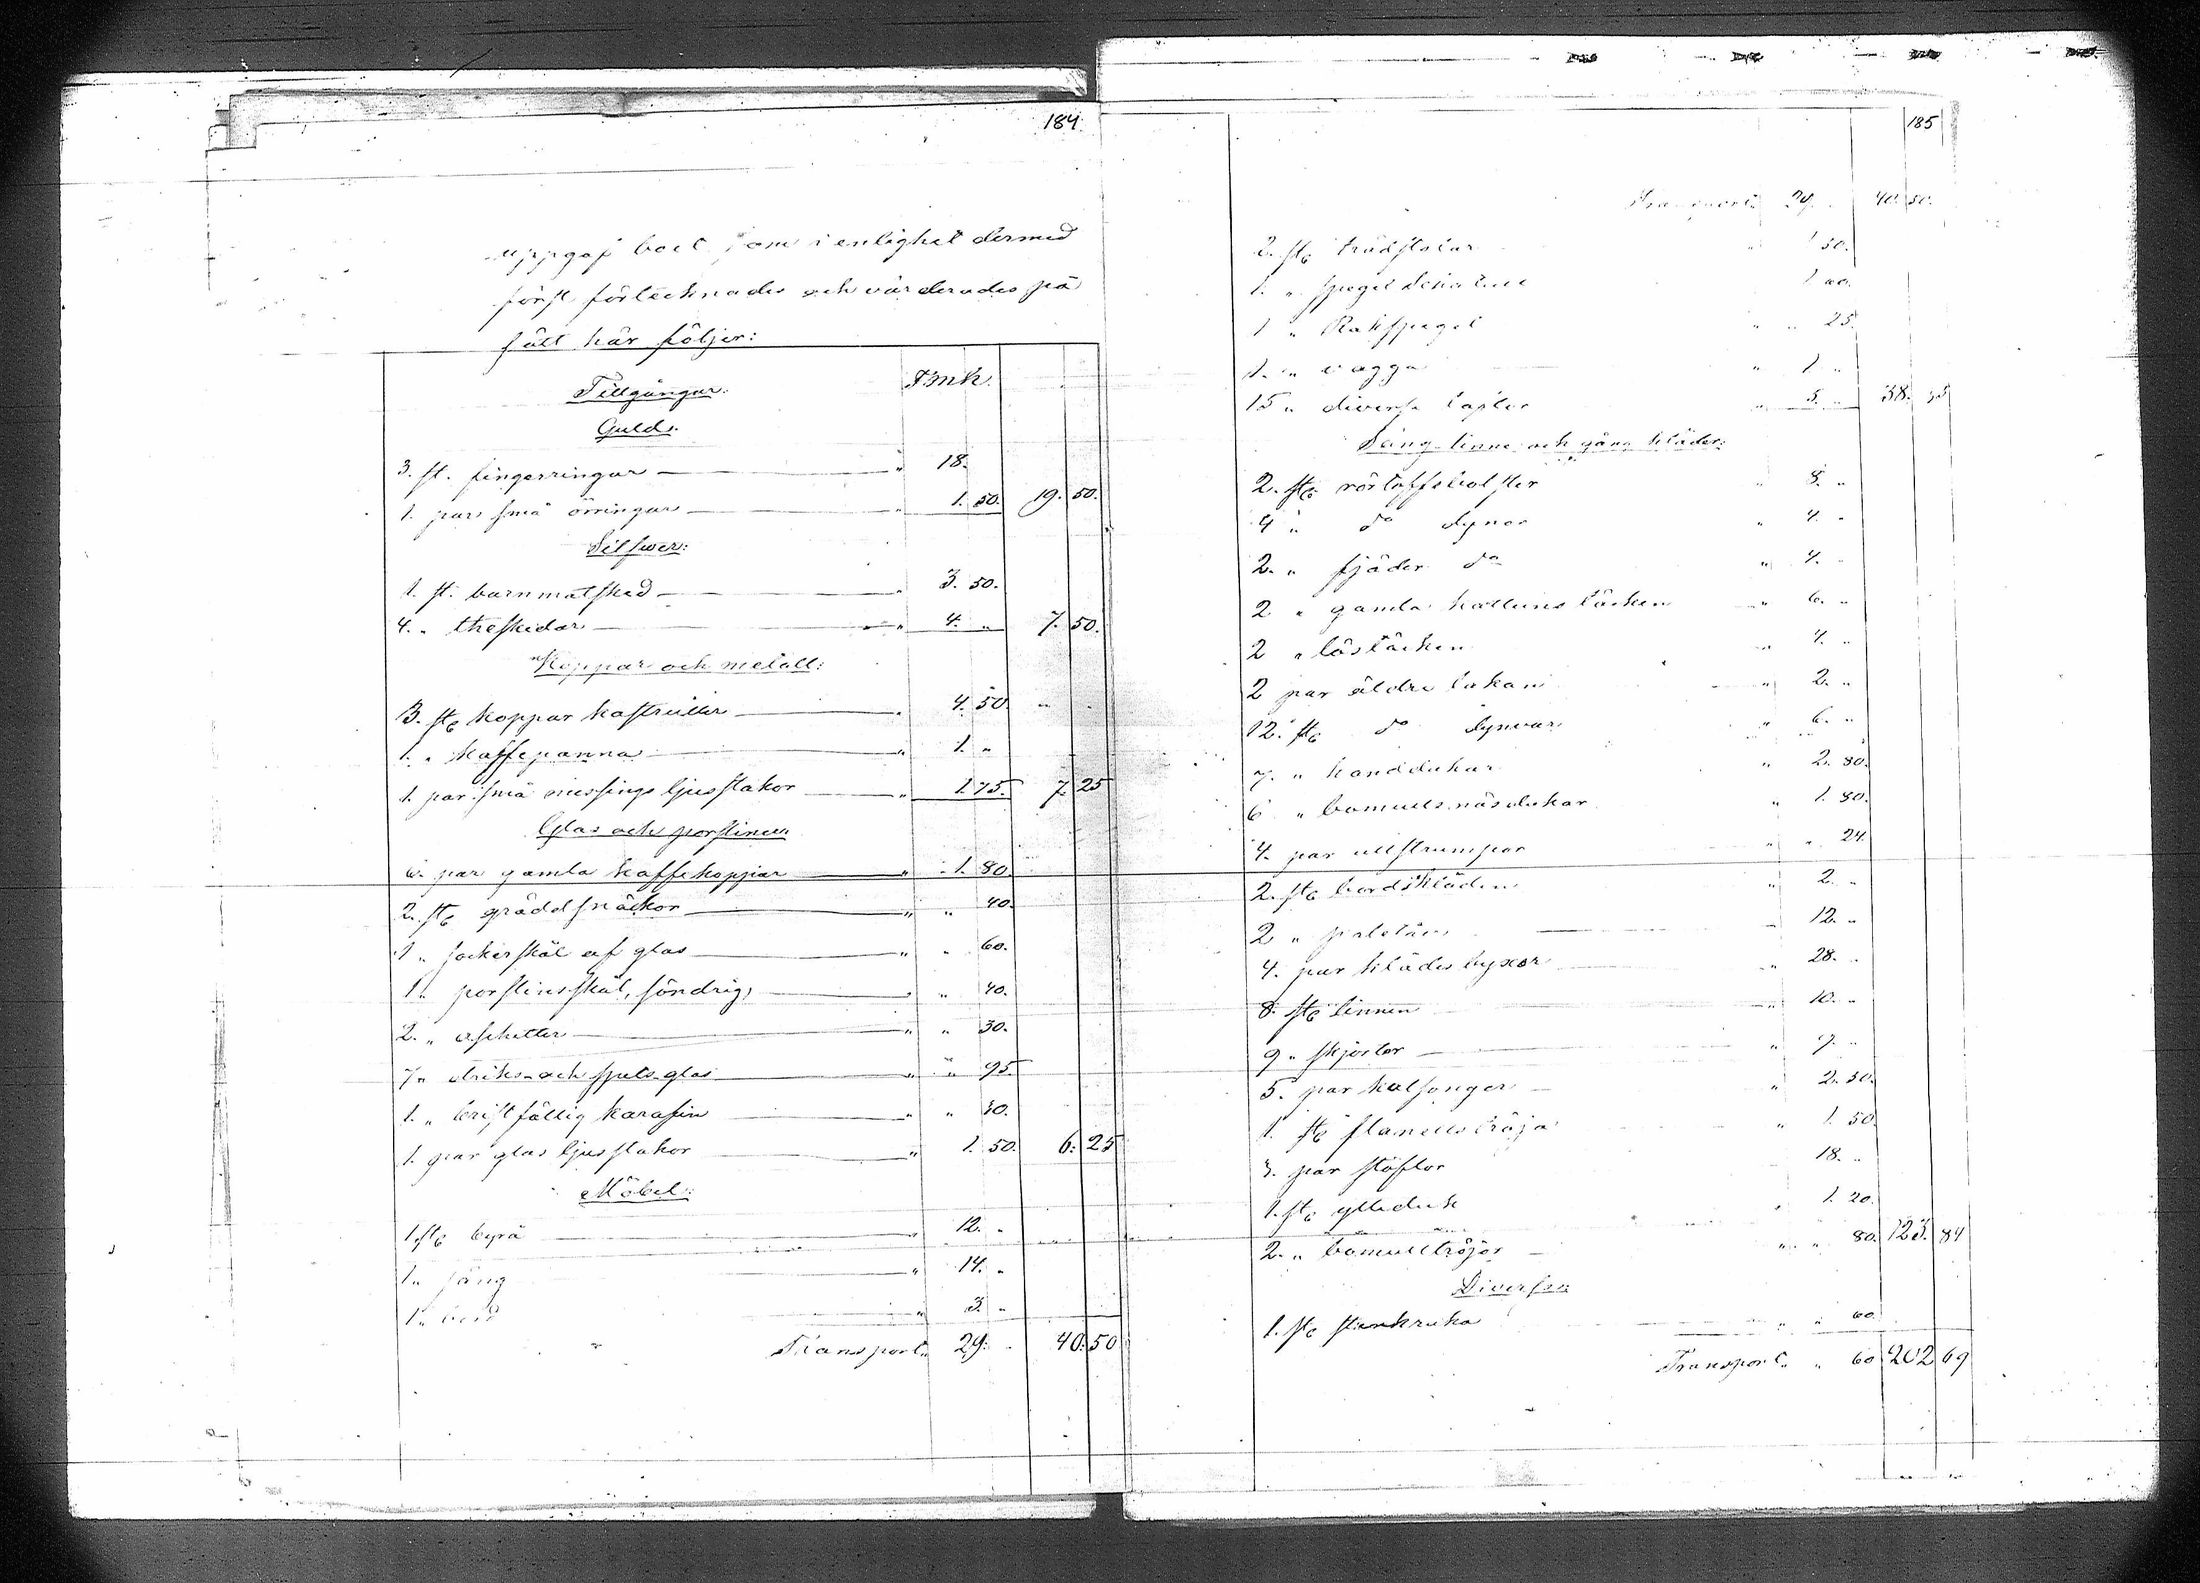 184.
uppgaf boet som i enlighet dermed
först förtecknades och värderades på
sätt här följer:
Tillgångar: Fmk.
Guld:
3. st. fingerringar " 18.
1. par små örringar " 1. 50. 19. 50.
Silfwer:
1. st. barnmatsked " 3. 50.
4. " theskedar " 4. " 7. 50.
Koppar och metall:
3. st. koppar kastruller " 4. 50.
1. " kaffepanna " 1. "
1. par små messings ljusstakor " 1. 75. 7. 25
Glas och porsliner:
6. par gamla kaffekoppar " 1. 80.
2. st. gräddsnäckor " " 40.
1 " sockerskål af glas " " 60.
1 " porslinsskål, söndrig, " " 40.
2. " asietter " " 30.
7 " driks- och spets-glas " " 95.
1. " bristfällig karafin " " 30.
1. par glas ljusstakor " 1. 50. 6. 25
Möbel:
1. st. byrå " 12. "
1. " säng " 14. "
1. " bord " 3. "
Transport: 29. " 40. 50
185
Transport: 29. " 40. 50.
2. st. trädstolar " 1 50.
1. " spegel 1 00.
1 " Rakspegel " " 25.
1. " vagga " 1 "
15 " diverse taflor " 5. " 38. 35
Säng- linne- och gång kläder:
2. st. rörtåffsbolster " 8. "
4 " do dynor " 4. "
2. " fjäder do " 4. "
2 " gamla kattuns täcken " 6. "
2 " löstäcken " 4. "
2 par äldre lakan " 2. "
12. st. do dynvar " 6. "
7. " handdukar " 2. 80.
6 " bomulls näsdukar " 1. 80.
4. par ullstrumpor " " 24.
2. st. bordskläden " 2. "
2 " paletåer " 12. "
4. par klädes byxor " 28. "
8. st. linnen " 10. "
9. " skjortor " 9. "
5. par kalsonger " 2. 50.
1. st. flanellströja " 1. 50.
3. par stöflor 18. "
1. st. ylleduk " 1. 20.
2. " bomullströjor " " 80. 123. 84
Diverse:
1. st. stenkruka " " 60.
Transport: " 60 202 69